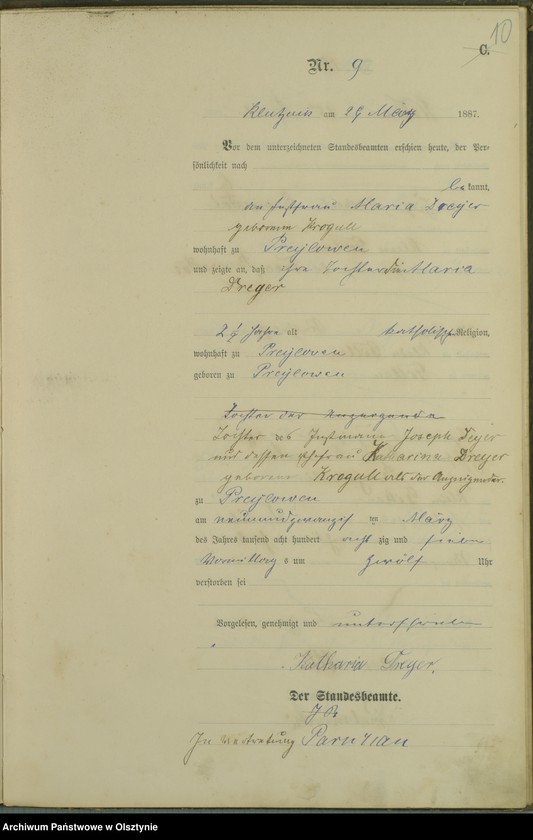 10
C.
Nr. 9
am 29 März 1887.
Vor dem unterzeichneten Standesbeamten erschien heute, der Per-
sönlichkeit nach
be kannt,
Maria Dreyer
geborene Krogull
wohnhaft zu Preylowen
und zeigte an, daß ihre Tochter Maria
Dreger
2 ½ Jahre alt katholischer Religion,
wohnhaft zu Preylowen
geboren zu Preylowen
Tochter der Anzeigende
Tochter des Instmann Joseph
und dessen Ehefrau Katharina Dreyer
geborene Krogull als der Anzeigender
zu Preylowen
am neunundzwanzig ten März
des Jahres tausend acht hundert acht zig und sieben
Vormittag s um zwölf Uhr
verstorben sei
Vorgelesen, genehmigt und unterschrieben
Katharina Dreger.
Der Standesbeamte.
In Vertretung
Archiwum Państwowe w Olsztynie